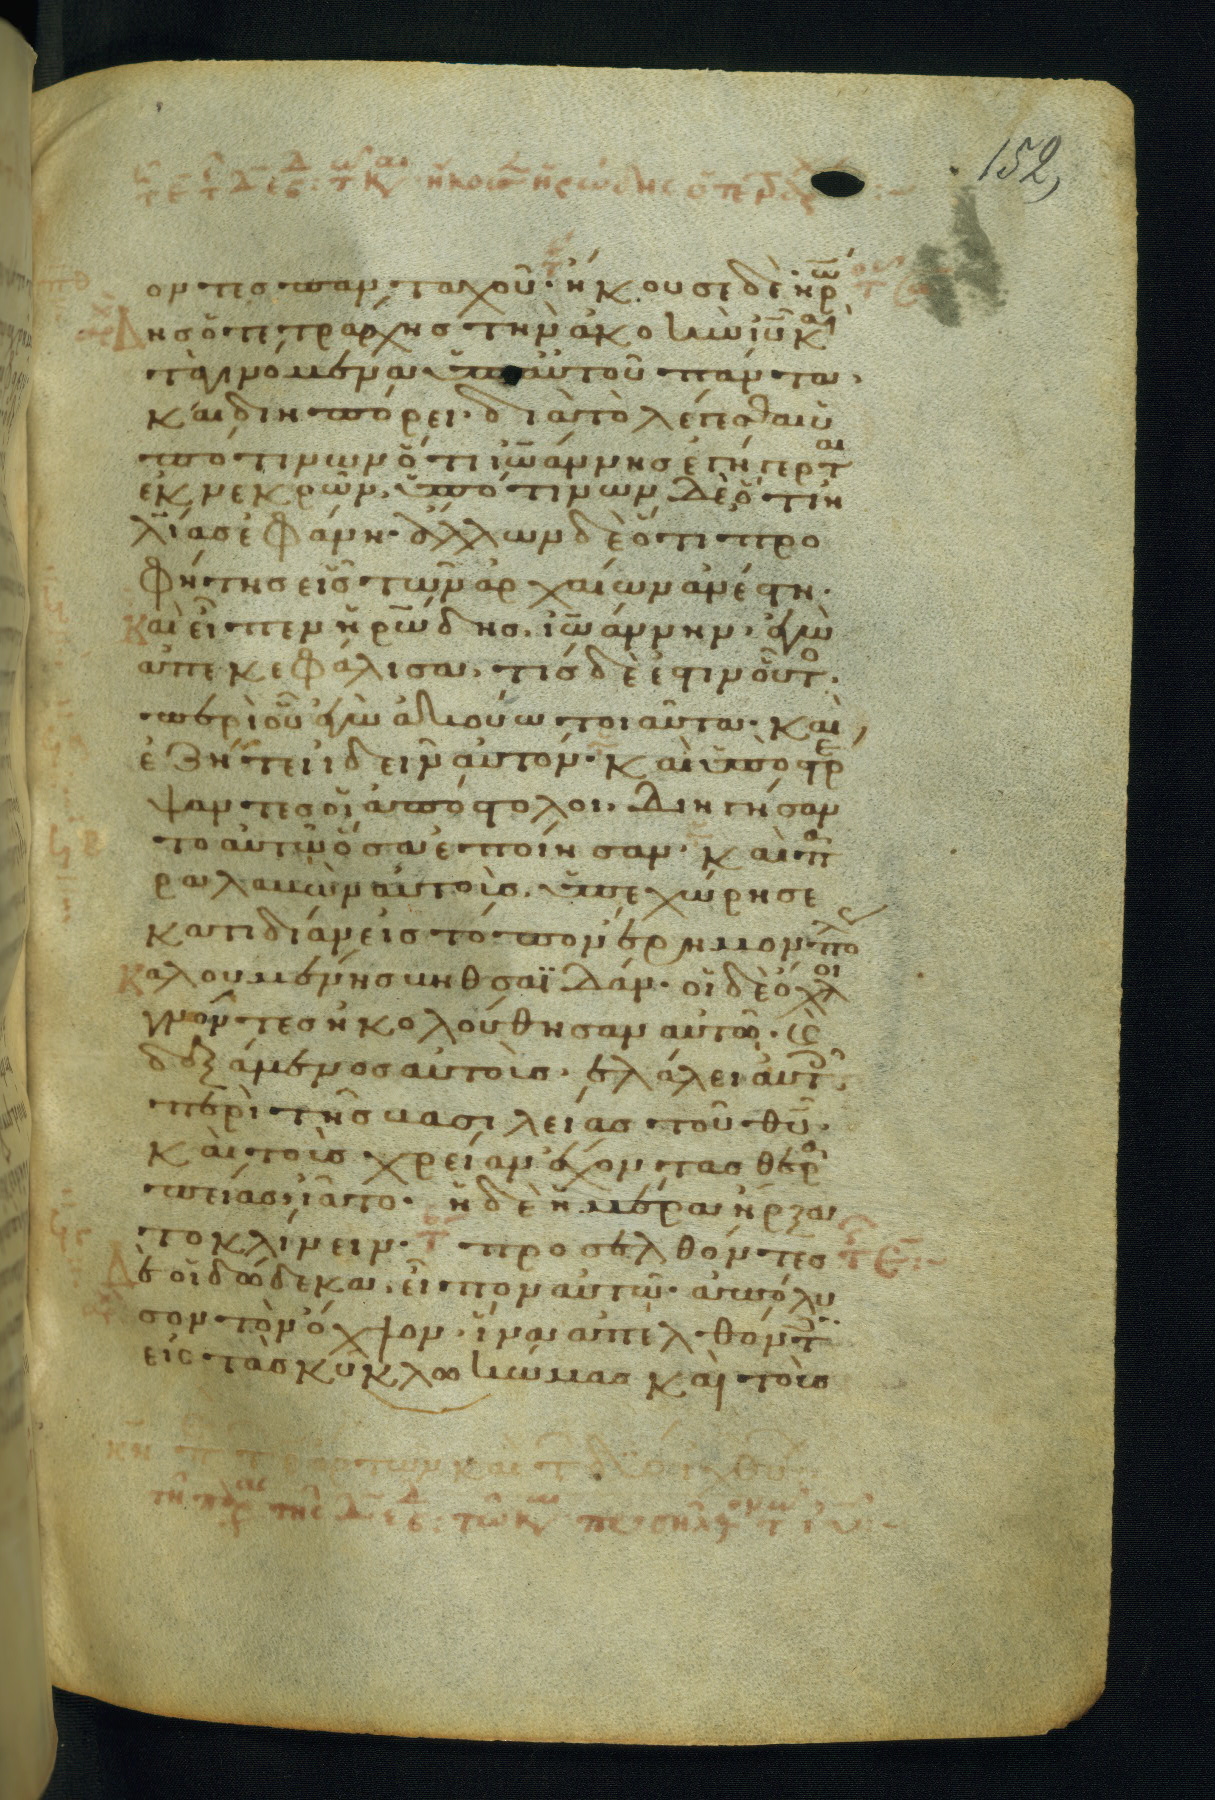 152
οντες πανταχοῦ· ἤκουσε δὲ ἡρώ
δης ὁ τετράρχης τὴν ἀκοὴν ιυ καὶ
τὰ γινόμενα ὑπ αὐτοῦ πάντα,
καὶ διηπόρει· διὰ τὸ λέγεσθαι ὑ
πο τινων ὅτι ἰωάννης ἐγήγερται
ἐκ νεκρῶν, ὑπό τινων δὲ ὅτι ἠ
λίας ἐφάνη· ἄλλων δὲ ὅτι προ
φήτης εἷς τῶν ἀρχαίων ἀνέστη·
Καὶ εἶπεν ἡρώδης, ἰωάννην ἐγὼ
ἀπεκεφάλισα, τίς δέ ἐστιν οὗτος
περὶ οὗ ἐγὼ ἀκούω τοιαῦτα· καὶ
ἐζήτει ἰδεῖν αὐτόν· Καὶ ὑποστρέ
ψαντες οἱ ἀπόστολοι· διηγήσαν
το αὐτῷ ὅσα ἐποίησαν· καὶ πα
ραλαβὼν αὐτοὺς, ὑπεχώρησε
κατιδίαν εἰς τόπον ἔρημον πόλεως
Καλουμένης βηθσαϊδάν· οἱ δὲ ὄχλοι
γνόντες ἠκολούθησαν αὐτῷ· καὶ
δεξάμενος αὐτοὺς· ἐλάλει αὐτοῖς
περὶ τῆς βασιλείας τοῦ θυ·
Καὶ τοὺς χρείαν ἔχοντας θερα
πείας, ἰᾶτο· ἡ δὲ ἡμέρα ἤρξα
το κλίνειν· προσελθόντες
δὲ οἱ δώδεκα, εἶπον αὐτῷ· ἀπόλυ
σον τὸν ὄχλον· ἵνα ἀπελθόντες
εἰς τὰς κύκλω κώμας καὶ τοὺς